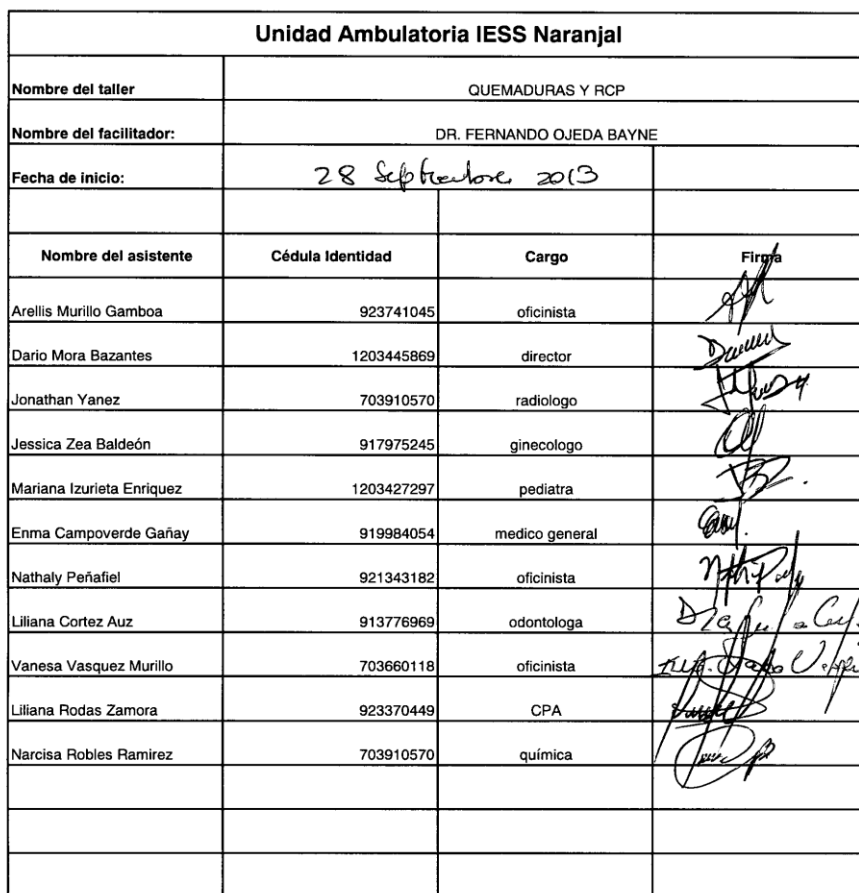 Unidad Ambulatoria IESS Naranjal
Nombre del taller QUEMADURAS Y RCP
Nombre del facilitador: DR. FERNANDO OJEDA BAYNE
Fecha de inicio: 28 Septiembre 2013
Nombre del asistente Cédula Identidad Cargo Firma
Arellis Murillo Gamboa 923741045 oficinista
Dario Mora Bazantes 1203445869 director
Jonathan Yanez 703910570 radiologo
Jessica Zea Baldeón 917975245 ginecologo
Mariana Izurieta Enriquez 1203427297 pediatra
Enma Campoverde Gañay 919984054 medico general
Nathaly Peñafiel 921343182 oficinista
Liliana Cortez Auz 913776969 odontologa
Vanesa Vasquez Murillo 703660118 oficinista
Liliana Rodas Zamora 923370449 CPA
Narcisa Robles Ramirez 703910570 química